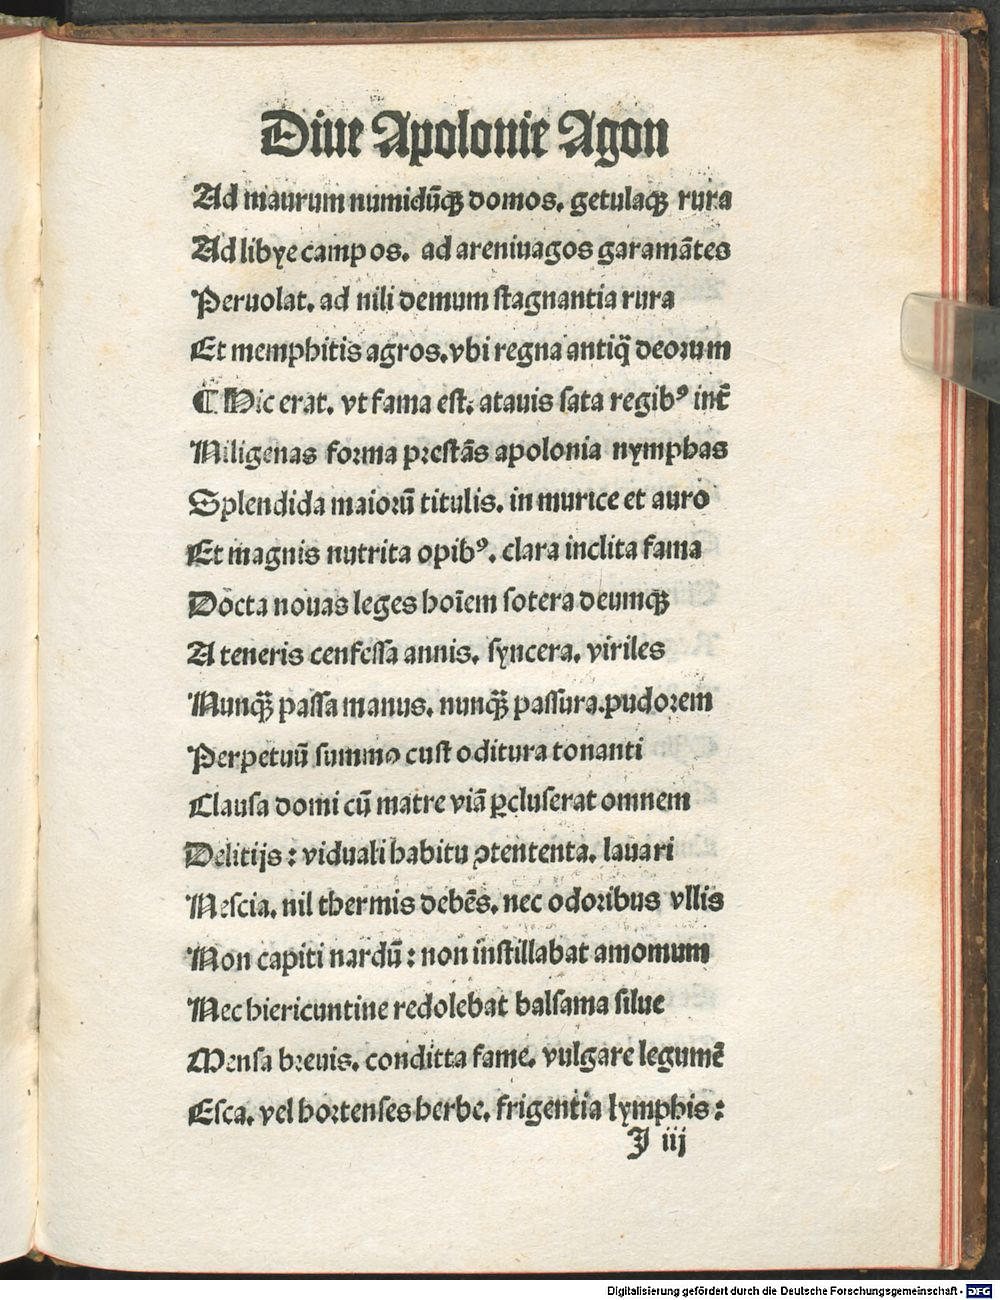 Diue Apolonie Agon
Ad maurum numidūqꝫ domos. getulaqꝫ rura
Ad libye campos. ad areniuagos garamātes
Peruolat. ad nili demum stagnantia rura
Et memphitis agros. vbi regna antiq̄ deorum
¶ Hic erat. vt fama est. atauis sata regibꝰ int̄
Niligenas forma prestās apolonia nymphas
Splendida maiorū titulis. in murice et auro
Et magnis nutrita opibꝰ. clara inclita fama
Docta nouas leges hoīem sotera deumqꝫ
A teneris cenfessa annis. syncera. viriles
Nunqꝫ̄ passa manus. nunqꝫ̄ passura. pudorem
Perpetuū summo custoditura tonanti
Clausa domi cū matre viā ꝑcluserat omnem
Delitijs : viduali habitu ꝯtententa. lauari
Nescia. nil thermis debēs. nec odoribus vllis
Non capiti nardū : non instillabat amomum
Nec hiericuntine redolebat balsama silue
Mensa breuis. conditta fame. vulgare legumē
Esca. vel hortenses herbe. frigentia lymphis :
J iij
Digitalisierung gefördert durch die Deutsche Forschungsgemeinschaft - DFG